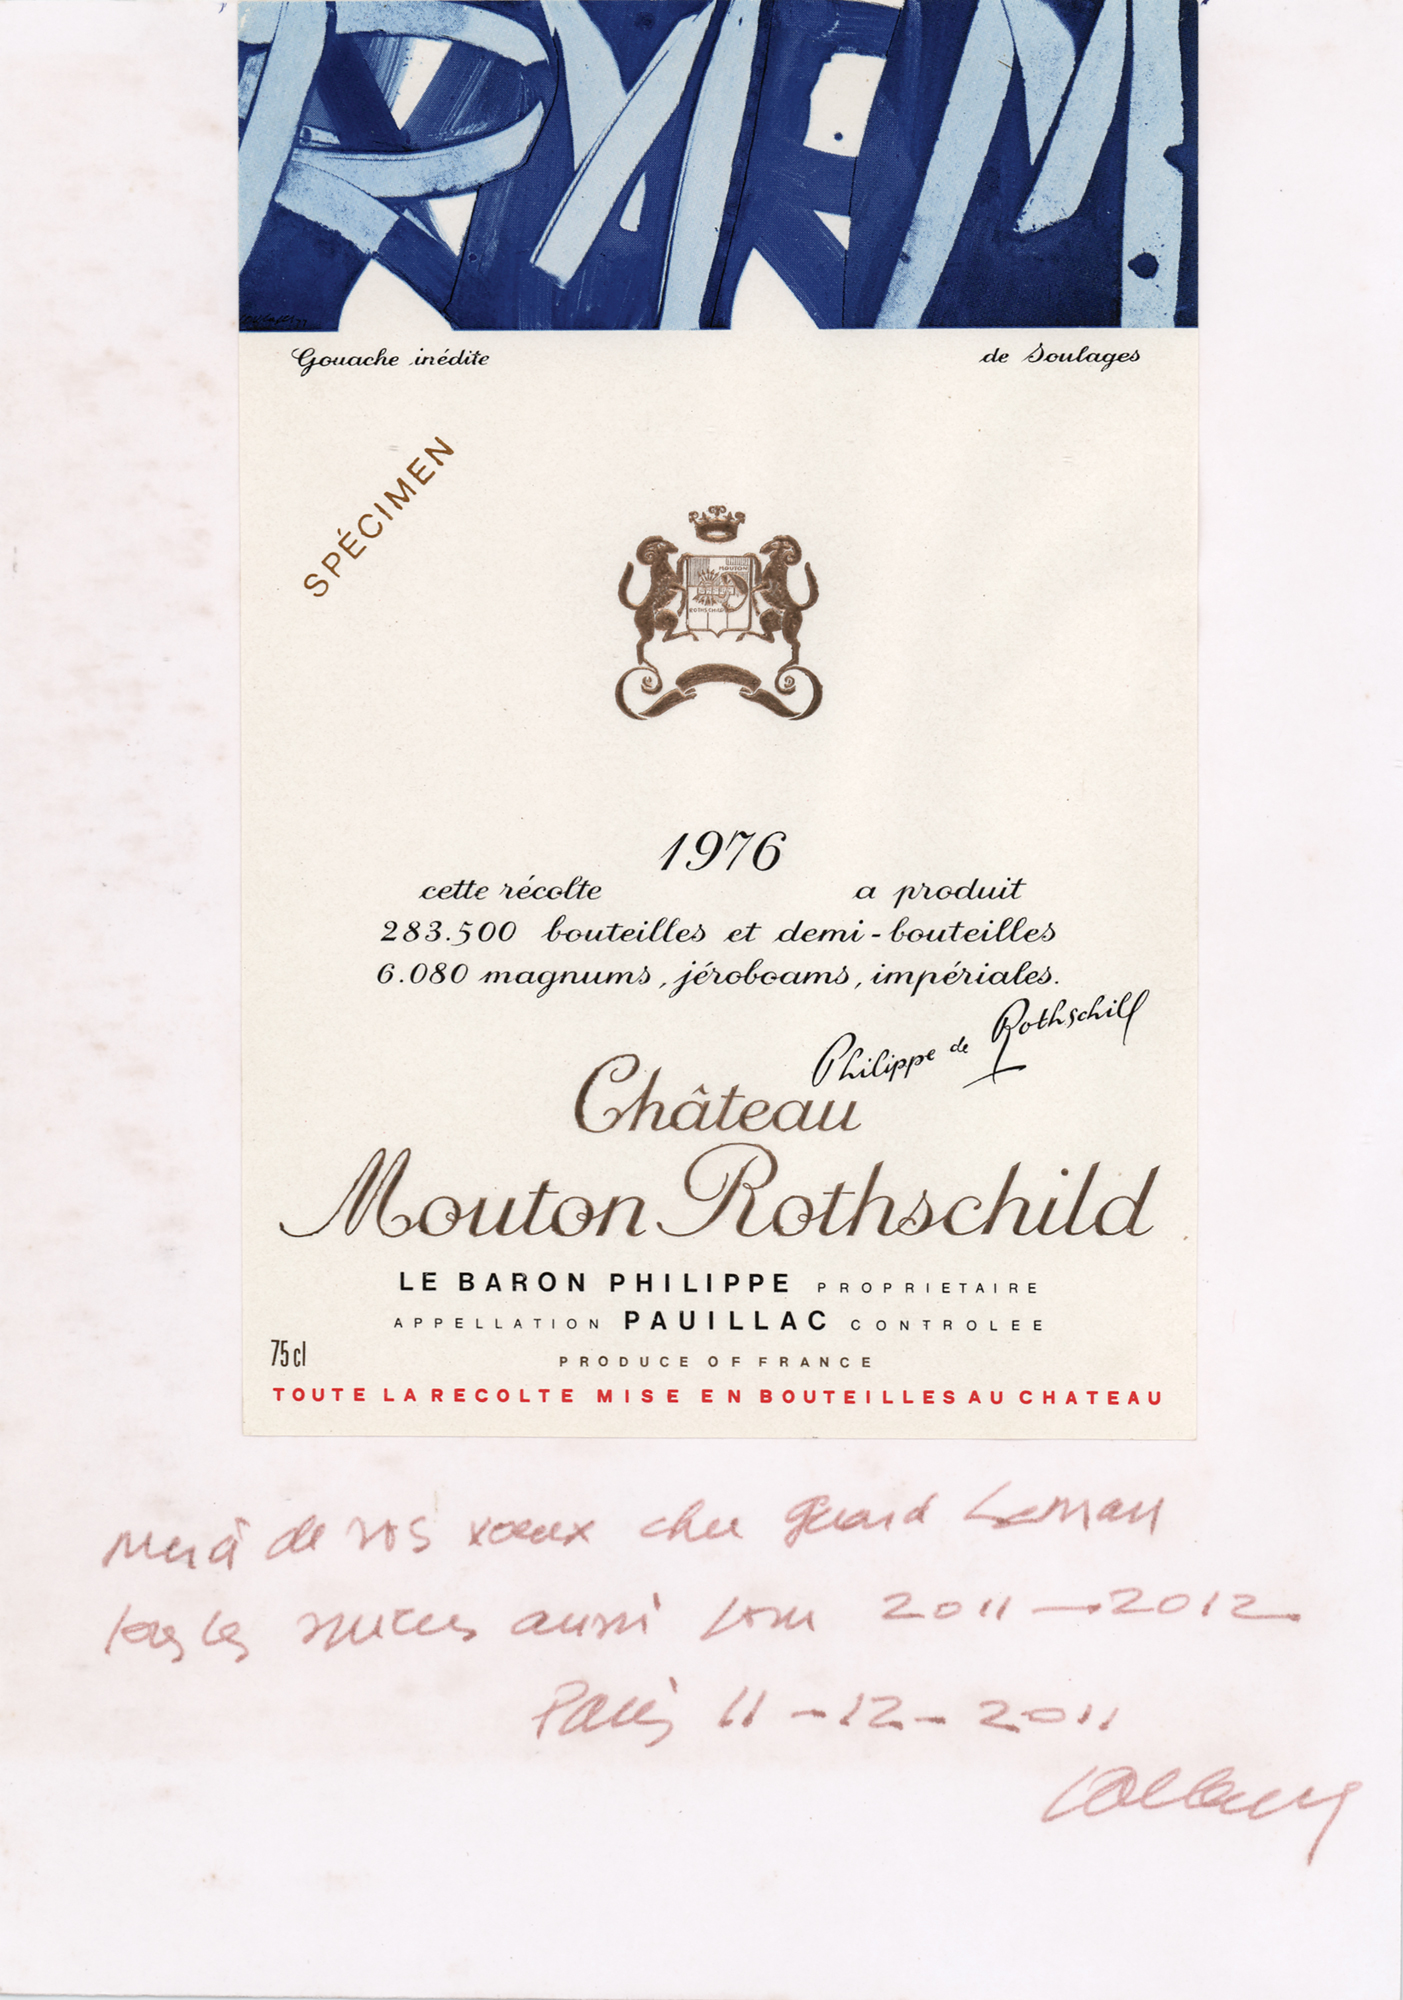 Gouache inédite de Soulages
SPÉCIMEN
MOUTON
ROTHSCHILD
1976
cette récolte a produit
283.500 bouteilles et demi-bouteilles
6.080 magnums, jéroboams, impériales.
Philippe de Rothschild
Château
Mouton Rothschild
LE BARON PHILIPPE PROPRIETAIRE
APPELLATION PAUILLAC CONTROLEE
75cl
PRODUCE OF FRANCE
TOUTE LA RECOLTE MISE EN BOUTEILLES AU CHATEAU
merci de vos voeux cher Gérard
tous les aussi pour 2011-2012
Paris 11-12-2011